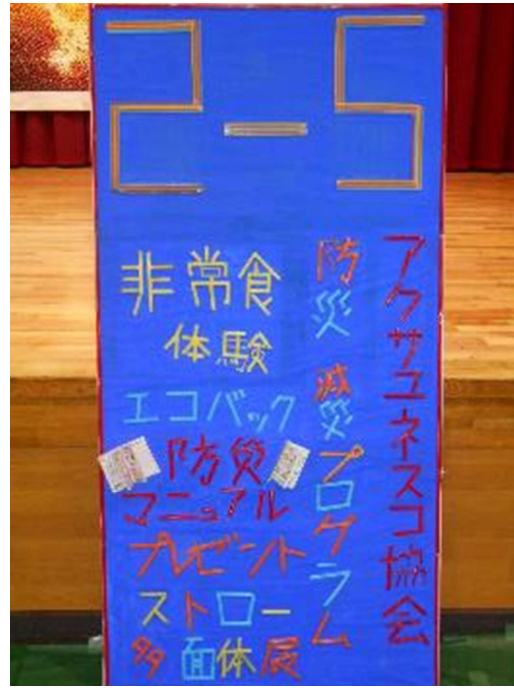 2-5
アクサユネスコ協会
防災 減災プログラム
非常食
体験
エコバック
防災
マニュアル
プレゼント
ストロー
99面体展